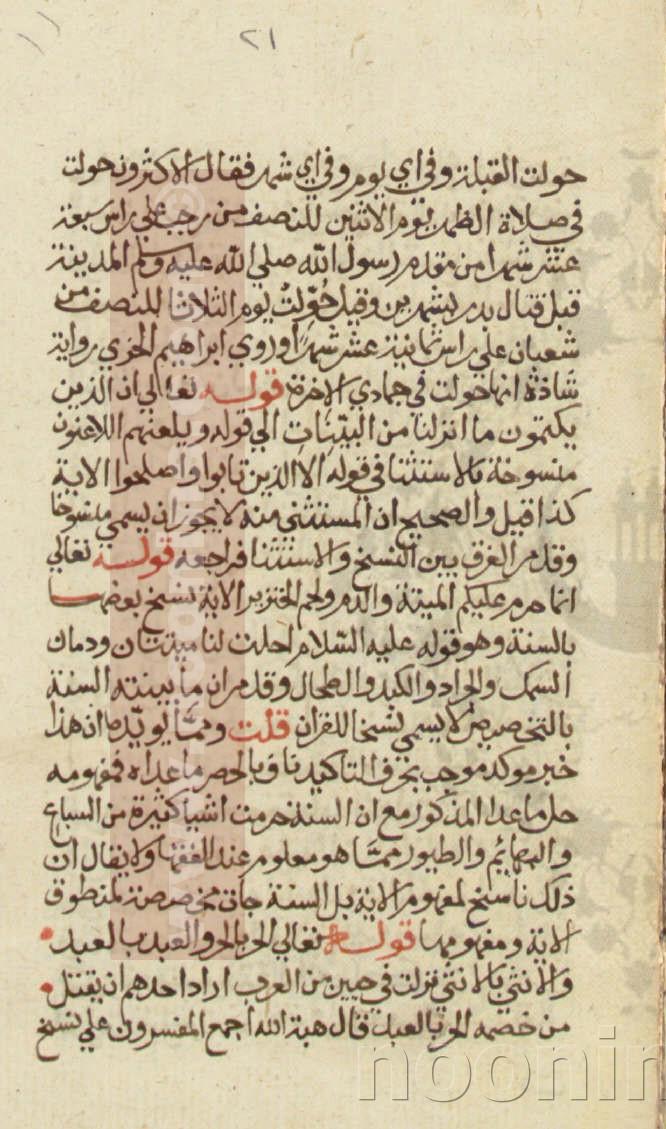 ٢١
حولت القبلة وفي اي يوم وفي اي شهر فقال الاكثرون حولت
في صلاة الظهر يوم الاثنين للنصف من رجب علي راس سبعة
عشر شهرا من مقدم رسول الله صلي الله عليه وسلم المدينة
قبل قتال بدر بشهرين وقيل حُوّلت يوم الثلاثا للنصف من
شعبان علي راس ثمانية عشر شهرًا وروي ابراهيم الحربي رواية
شاذة انها حولت في جمادي الاخرة قوله تعالي ان الذين
يكتمون ما انزلنا من البيّنات الي قوله ويلعنهم اللاعنون
منسوخة بالاستثنا في قوله الا الذين تابوا واصلحوا الاية
كذا قيل والصحيح ان المستثني منه لا يجوز ان يسمي منسوخا
وقد مر الفرق بين النسخ والاستثنا فراجعه قوله تعالي
انما حرم عليكم الميتة والدم ولحم الخنزير الاية نسخ بعضها
بالسنة وهو قوله عليه السّلام احلت لنا ميتتان ودمان
السمك والجراد والكبد والطحال وقد مر ان ما بينته السنة
بالتخصيص لا يسمي نسخا للقران قلت وممّا يويّده ان هذا
خبر موكد موجب بحرف التاكيد ناف بالحصر ما عداه فمفهومه
حل ما عدا المذكور مع ان السنة حرمت اشيا كثيرة من السباع
والبهائم والطيور ممّا هو معلوم عند الفقها ولا يقال ان
ذلك ناسخ لمفهوم الاية بل السنة جات مخصصة لمنطوق
الاية ومفهومها قوله تعالي الحر بالحر والعبد بالعبد
والانثي بالانثي نزلت في حيين من العرب اراد احدهم ان يقتل
من خصمه الحر بالعبد قال هبة الله اجمع المفسرون علي نسخ
noonin